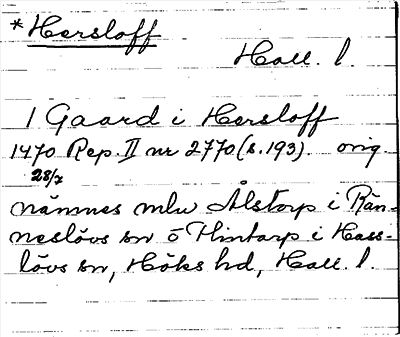 *Hersloff
Hall. l.
1 Gaard i Hersloff
1470 Rep. II nr 2770 (s. 193). orig.
28/7
nämnes mlw Ålstorp i Rän-
neslövs sn ö Hintarp i Hass-
lövs sn, Höks hd, Hall. l.